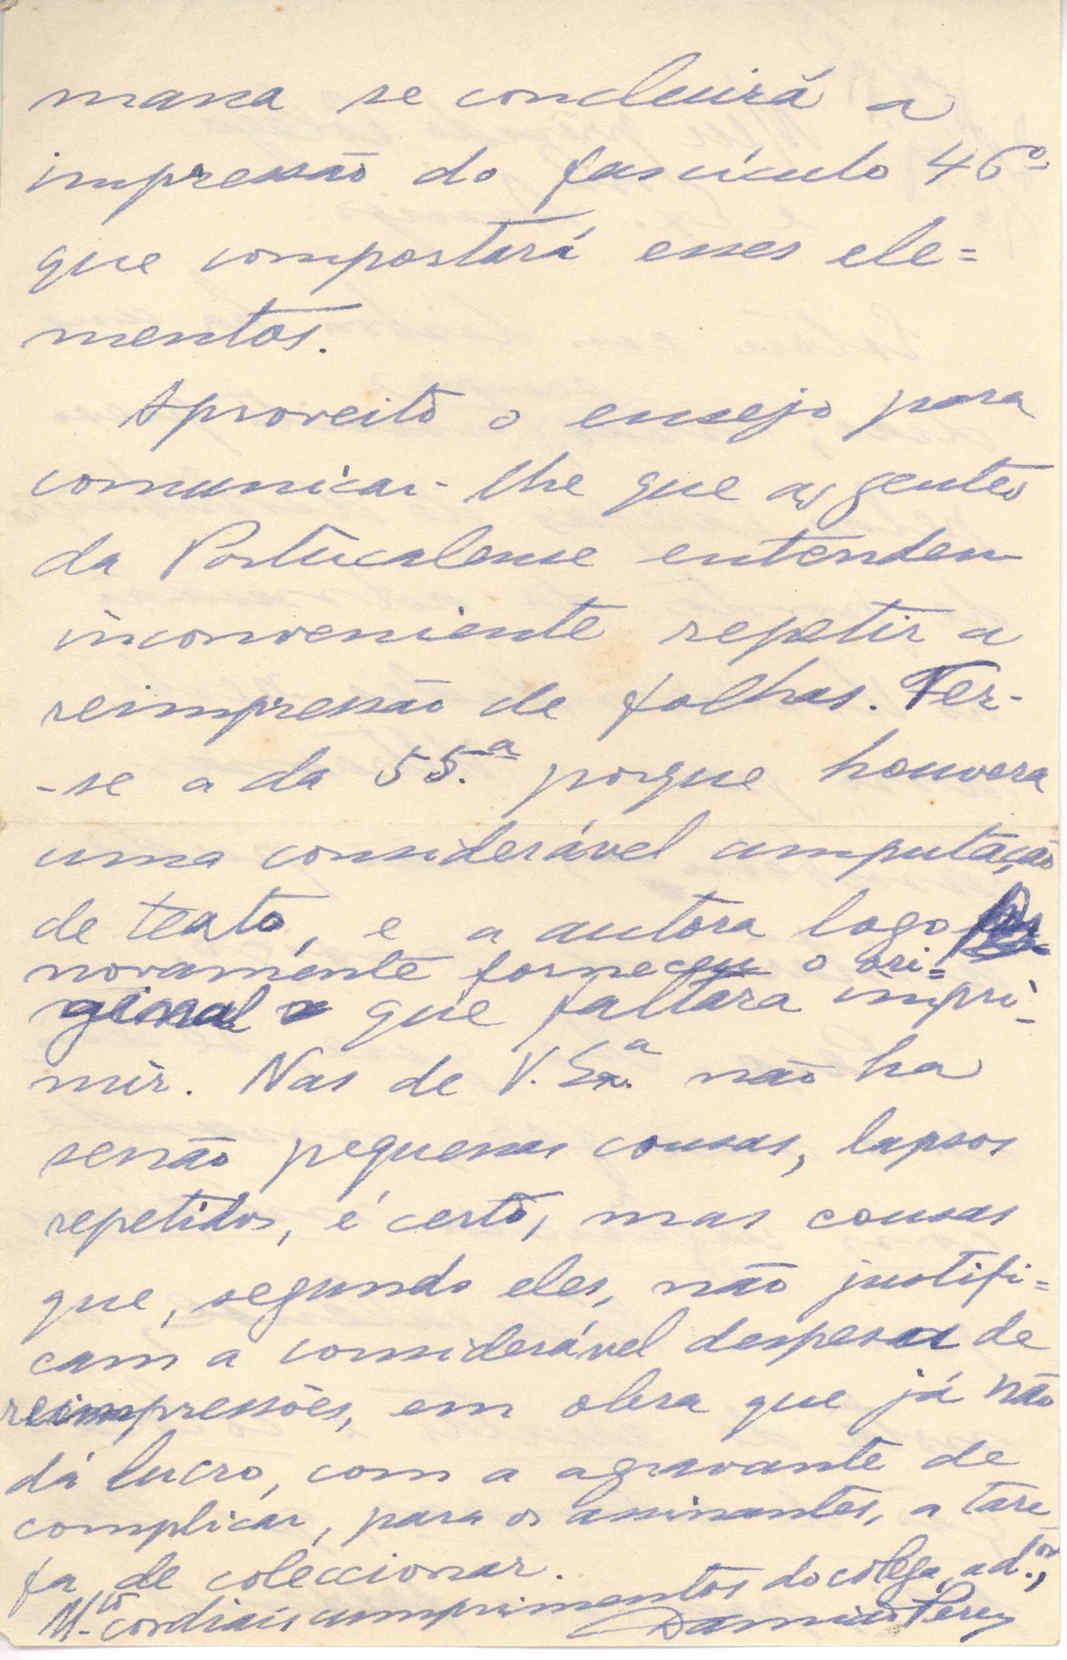 mana se concluirá a
impressão do fascículo 46º
que comportará esses ele=
mentos.
Aproveito o ensejo para
comunicar-lhe que as gentes
da Portucalense entendem
inconveniente repetir a
reimpressão de folhas. Fez-
-se a da 55.ª porque houvera
uma considerável amputação
de texto, e a autora logo
novamente forneceu o ori=
ginal que faltara impri-
mir. Nas de V. Ex.ª não ha
senão pequenas cousas, lapsos
repetidos, é certo, mas cousas
que, segundo eles, não justifi=
cam a considerável despesa de
reimpressões, em obra que já não
dá lucro, com a agravante de
complicar, para os assinantes, a tare
fa de coleccionar.
M.to cordiais cumprimentos do colega, ad.or,
Damião Peres